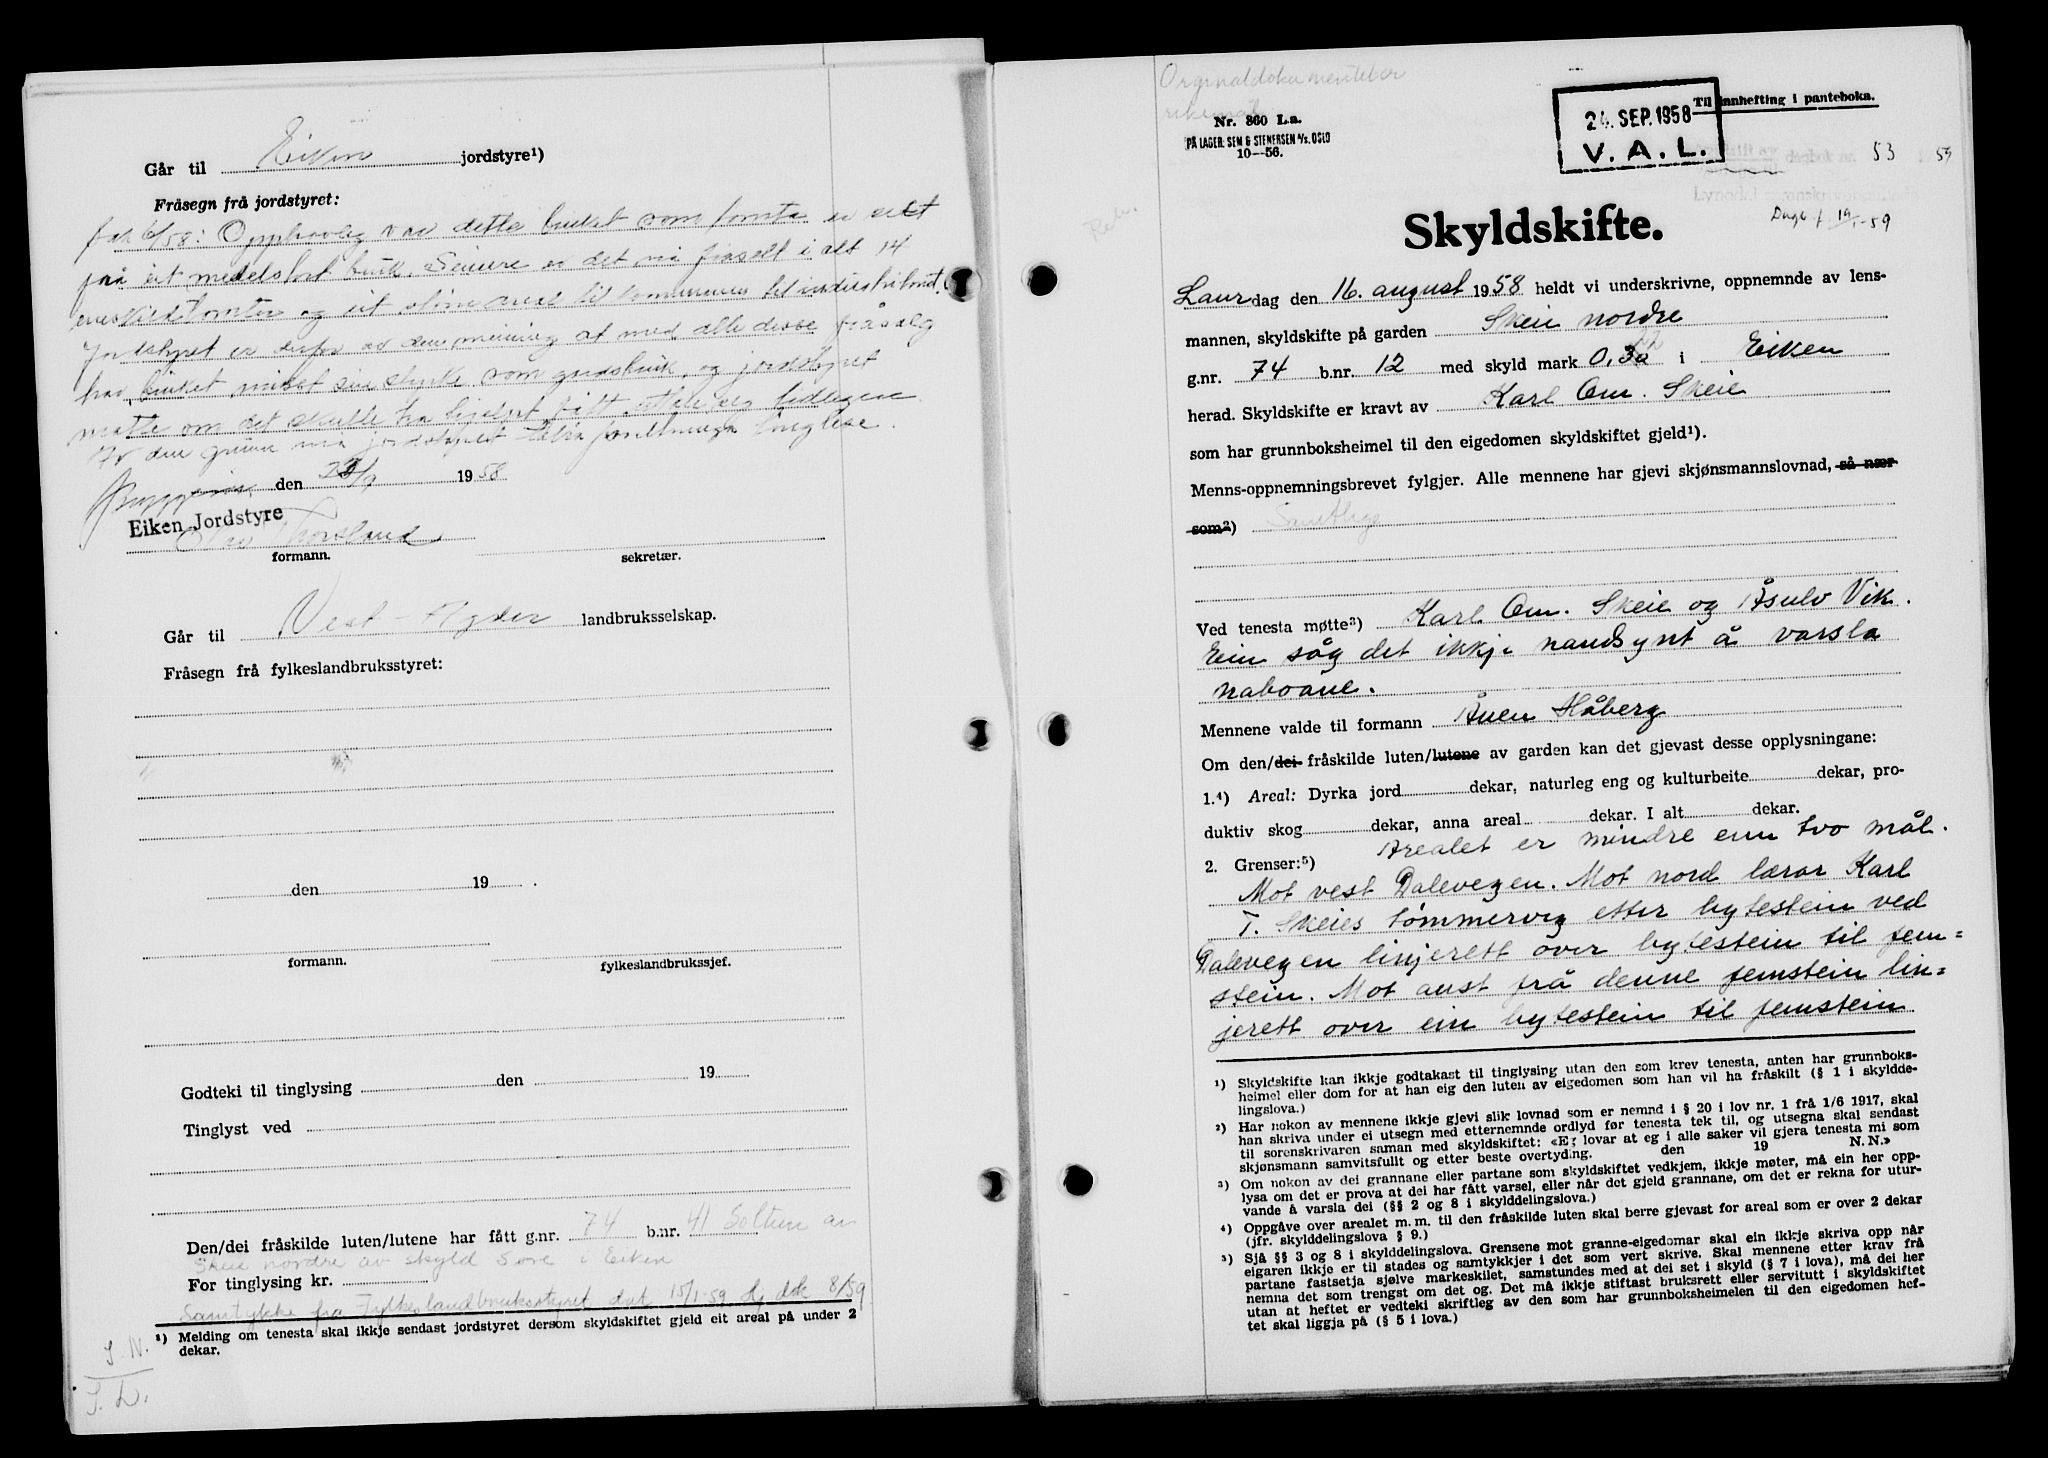 Går til Eiken jordstyre¹)
Fråsegn frå jordstyret:
/58: Opphavleg var dette bruket som tomta er selt
frå eit medelstort bruk. Seinare er det nå fråselt i alt 14
og eit større areal til kommunen til industritomt.
Jordstyret er derfor av den meining at med alle desse fråsalg
har bruket mistet sin styrke som gardsbruk, og jordstyret
måtte om det skulle ha hjelpt fått uttale seg tidlegare.
Av den grunn må jordstyret tinglese.
den 23/9 1958
Eiken Jordstyre
Olav Torsland
formann. sekretær.
Går til Vest-Agder landbruksselskap.
Fråsegn frå fylkeslandbruksstyret:
den 19 .
formann. fylkeslandbrukssjef.
Godteki til tinglysing den 19
Tinglyst ved
Den/dei fråskilde luten/lutene har fått g.nr. 74 b.nr. 41 Soltun av
Skeie nordre av skyld 5 øre i Eiken
For tinglysing kr.
Samtykke fra Fylkeslandbruksstyret dat. 15/1-59 dok 8/59
¹) Melding om tenesta skal ikkje sendast jordstyret dersom skyldskiftet gjeld eit areal på under 2
dekar.
J. N.
J. L.
Orginaldokumentet er
Nr. 360 L.a.
PÅ LAGER: SEM & STENERSEN A/S. OSLO
10—56.
24. SEP. 1958
V. A. L.
Til innhefting i panteboka.
dagbok nr. 53 59
Dagb.f. 19/1-59
Skyldskifte.
Laurdag den 16. august 1958 heldt vi underskrivne, oppnemnde av lens-
mannen, skyldskifte på garden Skeie nordre
g.nr. 74 b.nr. 12 med skyld mark 0,3 i Eiken
herad. Skyldskifte er kravt av Karl Om. Skeie
som har grunnboksheimel til den eigedomen skyldskiftet gjeld¹).
Menns-oppnemningsbrevet fylgjer. Alle mennene har gjevi skjønsmannslovnad, så nær
som²) Samtlige
Ved tenesta møtte³) Karl Om. Skeie og Åsulv Vik.
Ein såg det ikkje naudsynt å varsla
naboane.
Mennene valde til formann Ånen Håberg
Om den/dei fråskilde luten/lutene av garden kan det gjevast desse opplysningane:
1.⁴) Areal: Dyrka jord dekar, naturleg eng og kulturbeite dekar, pro-
duktiv skog dekar, anna areal dekar. I alt dekar.
Arealet er mindre enn tvo mål.
2. Grenser:⁵)
Mot vest Dalevegen. Mot nord lærar Karl
T. Skeies tømmerveg etter bytestein ved
Dalevegen linjerett over bytestein til jem=
stein. Mot aust frå denne jemstein lin=
jerett over ein bytestein til jemstein
¹) Skyldskifte kan ikkje godtakast til tinglysing utan den som krev tenesta, anten har grunnboks-
heimel eller dom for at han eig den luten av eigedomen som han vil ha fråskilt (§ 1 i skyldde-
lingslova.)
²) Har nokon av mennene ikkje gjevi slik lovnad som er nemnd i § 20 i lov nr. 1 frå 1/6 1917, skal
han skriva under ei utsegn med etternemnde ordlyd før tenesta tek til, og utsegna skal sendast
til sorenskrivaren saman med skyldskiftet: «Eg lovar at eg i alle saker vil gjera tenesta mi som
skjønsmann samvitsfullt og etter beste overtyding. den 19 N. N.»
³) Om nokon av dei grannane eller partane som skyldskiftet vedkjem, ikkje møter, må ein her opp-
lysa om det er prova at dei har fått varsel, eller når det gjeld grannane, om det er rekna for utur-
vande å varsla dei (§§ 2 og 8 i skylddelingslova.)
⁴) Oppgåve over arealet m. m. til den fråskilde luten skal berre gjevast for areal som er over 2 dekar
(jfr. skylddelingslova § 9.)
⁵) Sjå §§ 3 og 8 i skylddelingslova. Grensene mot granne-eigedomar skal ein ikkje skriva opp når
eigaren ikkje er til stades og samtykkjer i det som vert skrive. Skal mennene etter krav frå
partane fastsetja sjølve markeskilet, samstundes med at dei set i skyld (§ 7 i lova), må dei her
nemna det som trengst om det og. Det må ikkje stiftast bruksrett eller servitutt i skyldskiftet
utan at heftet er vedteki skriftleg av den som har grunnboksheimelen til den eigedomen hef-
tet skal liggja på (§ 5 i lova.)